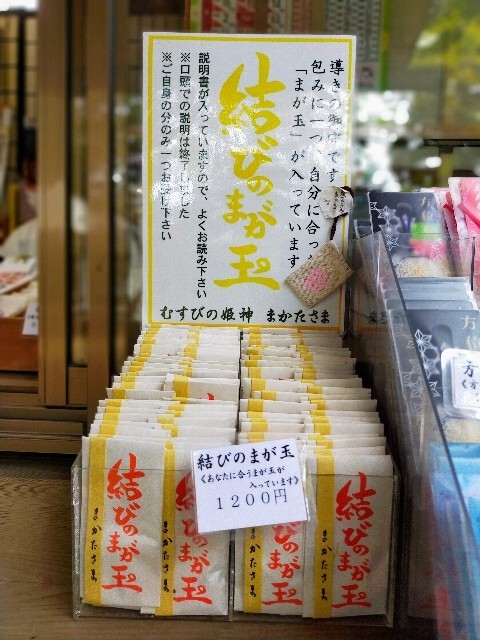 導きの御守です
包みに一つ、自分に合った
「まが玉」が入っています
結びのまが玉
説明書が入っていますので、よくお読み下さい
※口頭での説明は終了しました
※ご自身の分のみ一つお受け下さい
むすびの姫神 まかたさま
結びのまが玉
《あなたに合うまが玉が
入っています》
1200円
結びのまが玉
まかたさま
結びのまが玉
まかたさま
結びのまが玉
まかたさま
方位
方